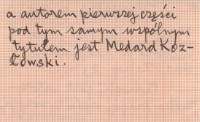 a autorem pierwszej części
pod tym samym wspólnym
tytułem jest Medard Koz-
łowski.